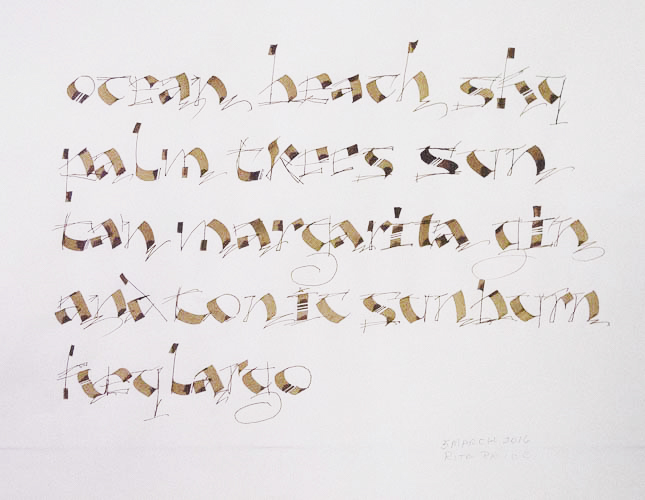 ocean beach sky
palm trees sun
tan margarita gin
and tonic sunburn
key largo
MARCH 2016
RITA